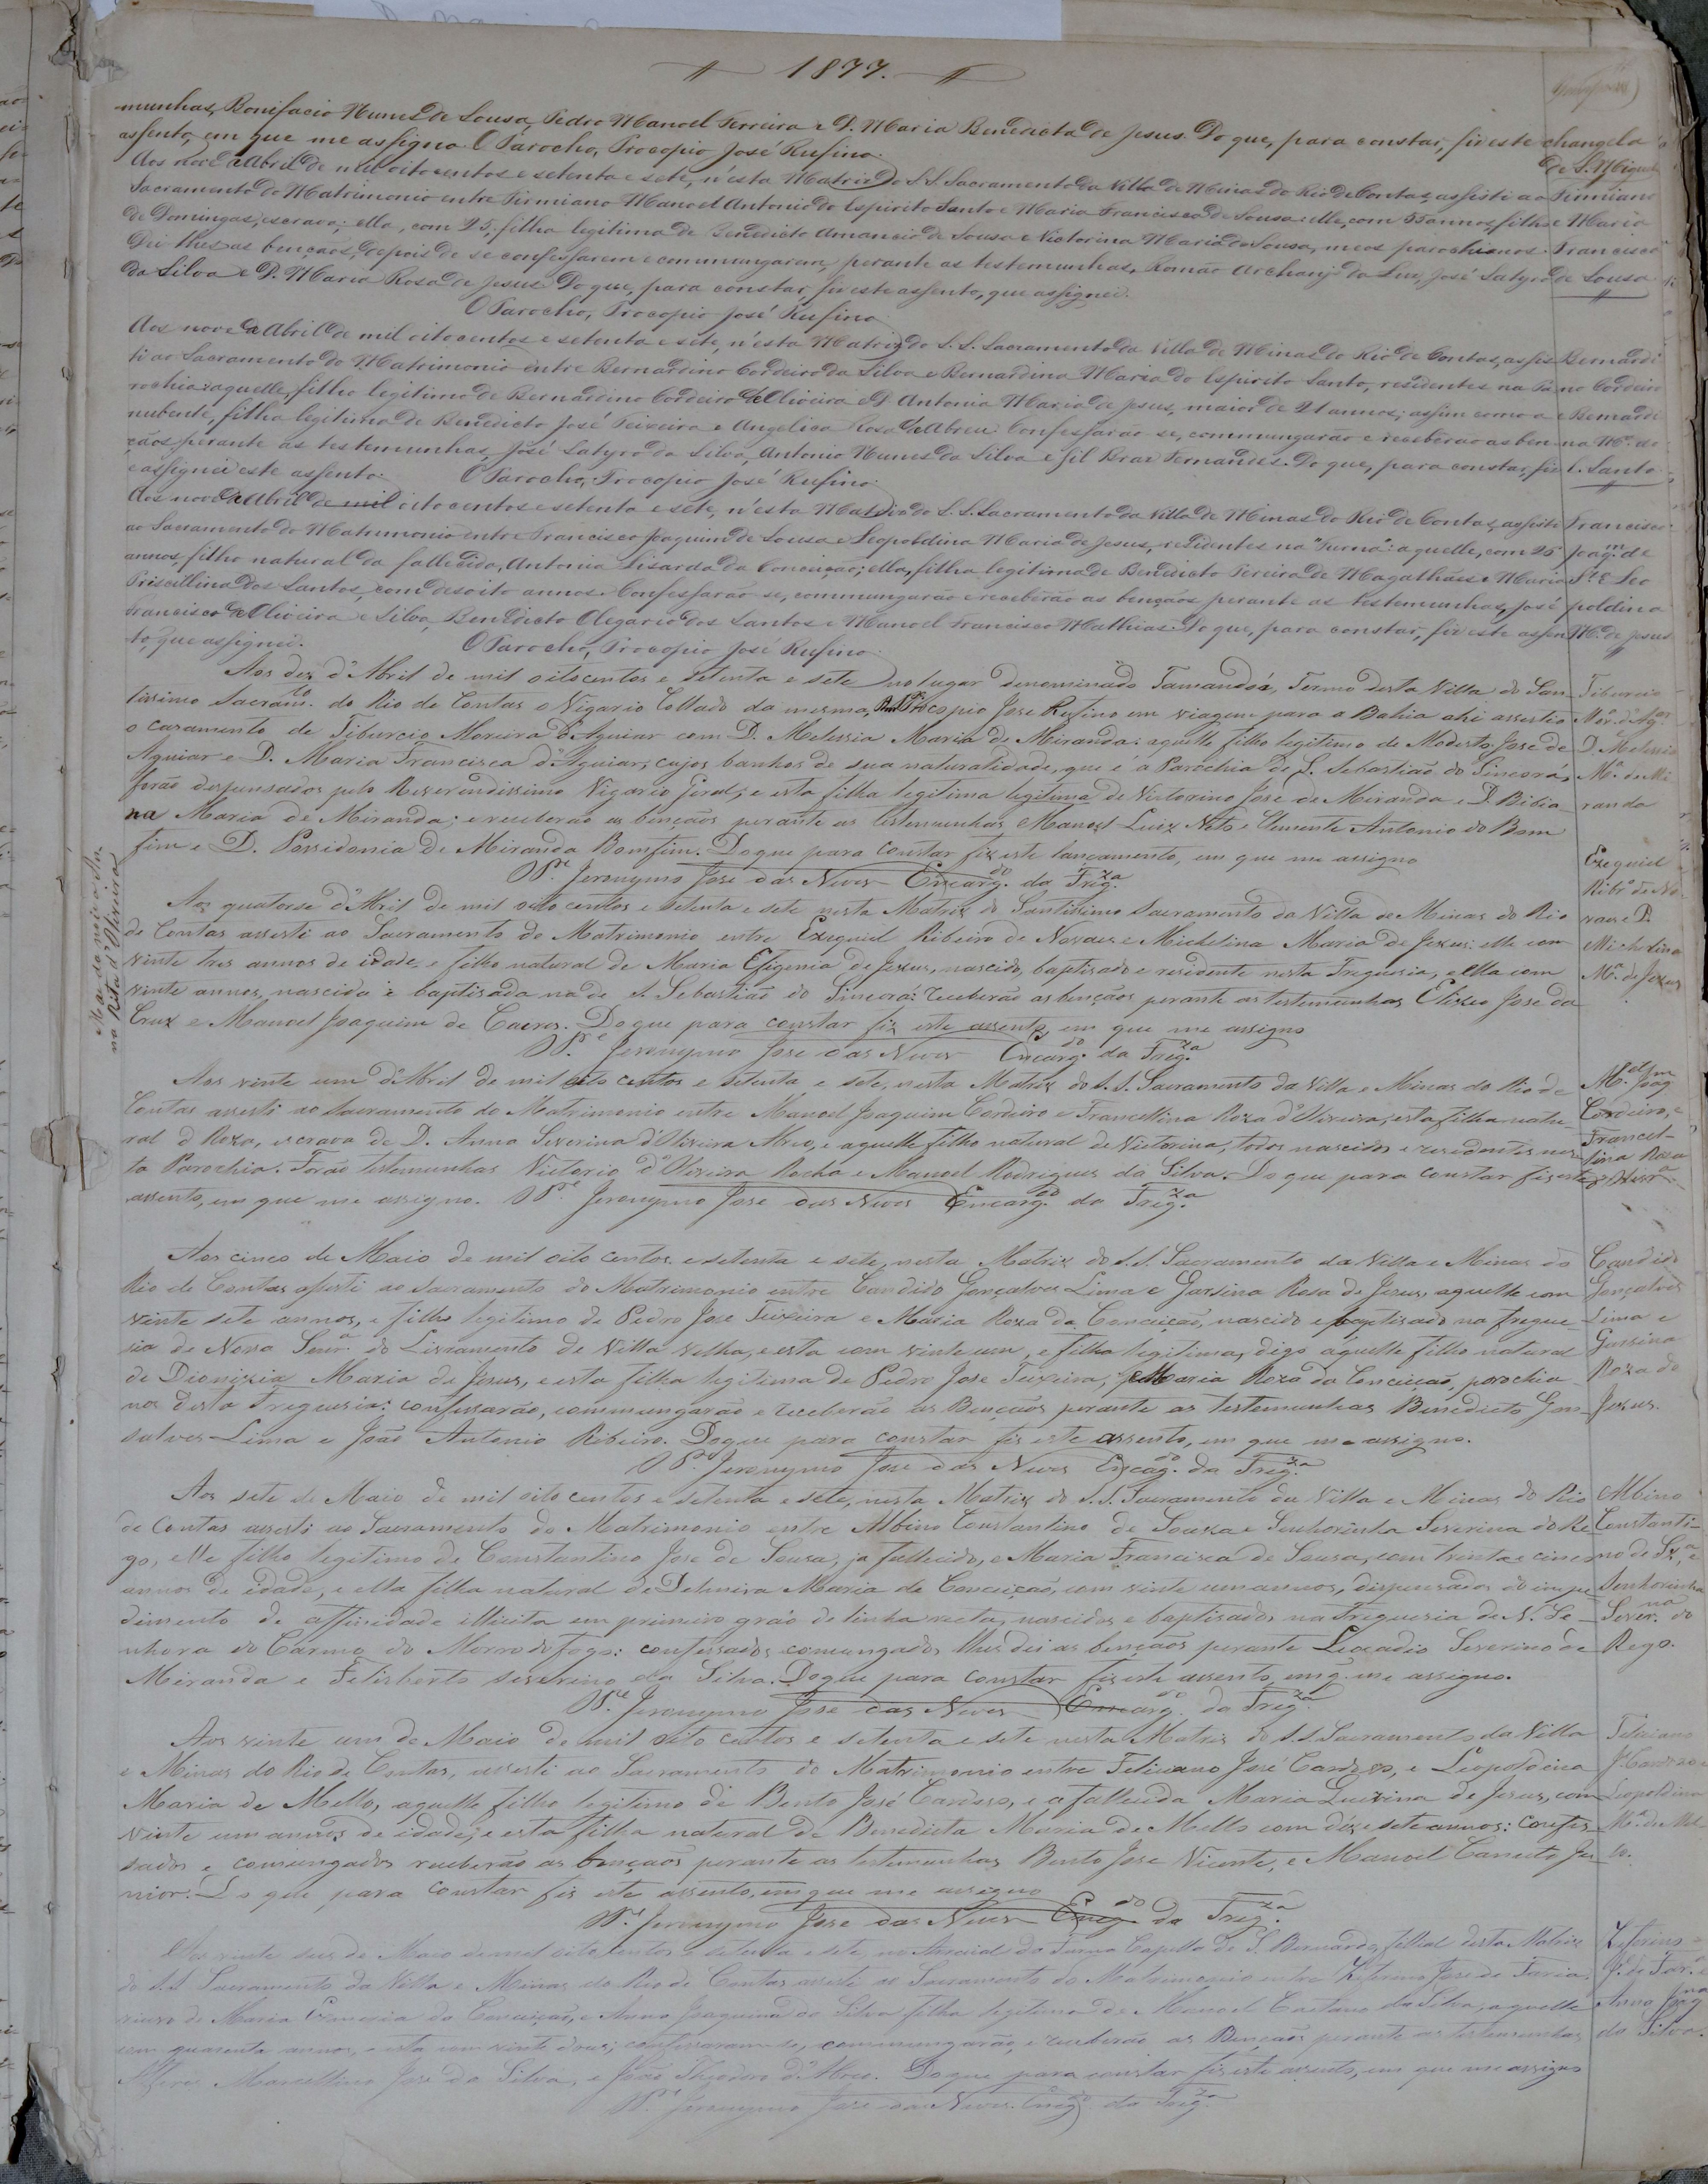 1877.
munhas, Bonifacio Nunes de Sousa, Pedro Manoel Ferreira e D. Maria Benedicta de Jesus. Do que, para constar, fiz este
assento, em que me assigno. O Parocho, Procopio José Rufino.
changela
de S. Miguel
Aos nove d'Abril de mil oito centos e setenta e sete, n'esta Matriz do S.S. Sacramento da Villa de Minas do Rio de Contas, assisti ao
Sacramento do Matrimonio entre Firmiano Manoel Antonio do Espirito Santo e Maria Francisca de Sousa: elle, com 55 annos, filho
de Domingas, escrava; ella, com 25, filha legitima de Benedicto Amancio de Sousa e Victorina Maria de Sousa, meos parochianos.
Dei-lhes as bençãos, depois de se confessarem e commungarem, perante as testemunhas, Romão Archanjo da Luz, José Satyro
da Silva e D. Maria Rosa de Jesus. Do que, para constar, fiz este assento, que assignei.
O Parocho, Procopio José Rufino.
Firmiano
e Maria
Francisca
de Sousa
Aos nove d'Abril de mil oito centos e setenta e sete, n'esta Matriz do S.S. Sacramento da Villa de Minas do Rio de Contas, assis
ti ao Sacramento do Matrimonio entre Bernardino Cordeiro da Silva e Bernardina Maria do Espirito Santo, residentes na Pa
rochia: aquelle, filho legitimo de Bernardino Cordeiro d'Oliveira e D. Antonia Maria de Jesus, maior de 21 annos; assim como a
nubente, filha legitima de Benedicto José Teixeira e Angelica Rosa d'Abreu. Confessarão-se, commungarão e receberão as ben
çãos perante as testemunhas, José Satyro da Silva, Antonio Nunes da Silva e Gil Braz Fernandes. Do que, para constar, fiz
e assignei este assento. O Parocho, Procopio José Rufino.
Bernardi
no Cordeiro
e Bernardi
na M.ª do
E. Santo
Aos nove d'Abril de mil oito centos e setenta e sete, n'esta Matriz do S.S. Sacramento da Villa de Minas do Rio de Contas, assisti
ao Sacramento do Matrimonio entre Francisco Joaquim de Sousa e Leopoldina Maria de Jesus, residentes na "Furna": aquelle, com 25
annos, filho natural da fallecida, Antonia Lisarda da Conceição; ella, filha legitima de Benedicto Pereira de Magalhães e Maria
Priscillina dos Santos, com desoito annos. Confessarão-se, commungarão e receberão as bençãos perante as testemunhas, José
Francisco d'Oliveira e Silva, Benedicto Olegario dos Santos e Manoel Francisco Mathias. Do que, para constar, fiz este assen
to, que assignei. O Parocho, Procopio José Rufino.
Francisco
Joaq.m de
S.ª e Leo
poldina
M.ª de Jesus
Aos dez d'Abril de mil oito centos e setenta e sete no lugar denominado Tamandoá, Termo desta Villa do San
tissimo Sacram.to do Rio de Contas o Vigario Collado da mesma, Procopio Jose Rufino em viagem para a Bahia ahi assestio
o casamento de Tiburcio Moreira d'Aguiar com D. Melussia Maria de Miranda: aquelle filho legitimo de Modesto Jose de
Aguiar e D. Maria Francisca d'Aguiar; cujos banhos de sua naturalidade, que é a Parochia de S. Sebastião do Sincorá,
forão despensados pelo Reverendissimo Vigario Geral; e esta filha legitima legitima de Victorino José de Miranda e D. Bibia
na Maria de Miranda; e receberão as bençãos perante as testemunhas Manoel Luiz Neto e Clemente Antonio do Bom
fim e D. Possidonia de Miranda Bomfim. Do que para constar fiz este lançamento, em que me assigno
P.e Jeronymo Jose das Neves Encarg.do da Freg.za
Tiburcio
Mor.ª d'Ag.ar
D. Melussia
M.ª de Mi
randa
Aos quatorse d'Abril de mil oito centos e setenta e sete nesta Matriz do Santissimo Sacramento da Villa de Minas do Rio
de Contas assesti ao Sacramento do Matrimonio entre Ezequiel Ribeiro de Novaes e Michelina Maria de Jezus: elle com
vinte tres annos de idade, e filho natural de Maria Efigenia de Jezus, nascido, baptisado e residente nesta Freguesia, e ella com
vinte annos, nascida e baptisada na de S. Sebastião do Sincorá: receberão as bençãos perante as testemunhas Elizeo Jose da
Cruz e Manoel Joaquim de Caeros. Do que para constar fiz este assento, em que me assigno
P.e Jeronymo Jose das Neves Encarg.do da Freg.za
Ezequiel
Ribr.º de No
vaes e D.
Michelina
M.ª de Jezus
Mae da noiva An
na Rita d'Oliveira
Aos vinte um d'Abril de mil oito centos e setenta e sete, nesta Matriz do S.S. Sacramento da Villa e Minas do Rio de
Contas assesti ao Sacramento do Matrimonio entre Manoel Joaquim Cordeiro e Francellina Roza d'Oliveira; esta filha natu
ral d Roza, escrava de D. Anna Severina d'Oliveira Abreo, e aquelle filho natural de Victorina, todos nascidos e residentes nes
ta Parochia. Forão testemunhas Victorio d'Oliveira Rocha e Manoel Rodrigues da Silva. Do que para constar fiz este
assento, em que me assigno. P.e Jeronymo Jose das Neves Encarg.do da Freg.za
M.el Joaq.m
Cordeiro, e
Francel-
lina Roza
d'Oliv.ra
Aos cinco de Maio de mil oito centos e setenta e sete, nesta Matriz do S.S. Sacramento da Villa e Minas do
Rio de Contas assesti ao Sacramento do Matrimonio entre Candido Gonçalves Lima e Garsina Rosa de Jezus, aquelle com
vinte sete annos, e filho legitimo de Pedro Jose Teixeira e Maria Roza da Conceição, nascido e baptisado na fregue
sia de Nossa Senr.ª do Livramento de Villa Velha, e esta com vinte um, e filha legitima, digo aquelle filho natural
de Dionizia Maria de Jesus, e esta filha legitima de Pedro Jose Teixeira, e Maria Roza da Conceição, parochia
nos desta Freguesia: confessarão, commungarão e receberão as Bençãos perante as testemunhas Benedicto Gon
salves Lima e João Antonio Ribeiro. Do que para constar fiz este assento, em que me assigno.
P.e Jeronymo Jose das Neves Encarg.do da Freg.za
Candido
Gonçalves
Lima e
Garsina
Roza de
Jezus.
Aos sete de Maio de mil oito centos e setenta e sete, nesta Matriz do S.S. Sacramento da Villa e Minas do Rio
de Contas assesti ao Sacramento do Matrimonio entre Albino Constantino de Souza e Senhorinha Severina do Re
go, elle filho legitimo de Constantino Jose de Sousa, ja fallecido, e Maria Francisca de Sousa, com trinta e cinco
annos de edade, e ella filha natural de Delmira Maria da Conceição, com vinte um annos, dispensados do impe
dimento de affinidade illicita em primeiro gráo de linha recta, nascidos e baptisados na Freguesia de N. Se
nhora do Carmo do Morro do fogo: confessados, comungados lhes dei as bençãos perante Leocadio Severino de
Miranda e Felisberto Severino da Silva. Do que para constar fiz este assento, em q. me assigno.
P.e Jeronymo Jose das Neves Encarg.do da Freg.za
Albino
Constanti-
no de Sz.ª, e
Senhorinha
Sever.na do
Rego.
Aos vinte um de Maio de mil oito centos e setenta e sete nesta Matriz do S.S. Sacramento da Villa
e Minas do Rio de Contas, assesti ao Sacramento do Matrimonio entre Feliciano José Cardozo, e Leopoldina
Maria de Mello, aquelle filho legitimo de Bento José Cardoso, e a fallecida Maria Luizina de Jesus, com
vinte um annos de idade, e esta filha natural de Benedicta Maria de Mello com dezesete annos: confes
sados e comungados receberão as bençaos perante as testemunhas Bento Jose Vicente, e Manoel Caneito Ju
nior. Do que para constar fiz este assento, em que me assigno
P.e Jeronymo Jose das Neves Encg.do da Freg.za
Feliciano
J.e Cardozo e
Leopoldina
M.ª de Mel
lo.
Aos vinte seis de Maio de mil oito centos e setenta e sete, no Arraial da Furna Capella de S. Bernardo, filial desta Matriz
do S.S. Sacramento da Villa e Minas do Rio de Contas assesti ao Sacramento do Matrimonio entre Zeferino Jose de Faria,
viuvo de Maria da Conceição, e Anna Joaquina da Silva filha legitima de Manoel Caetano da Silva, aquelle
com quarenta annos, e esta com vinte dous; confessaram-se, commungarão, e receberão as Bençãos perante as testemunhas
Alferes Marcellino Jose da Silva, e João Theodoro d'Abreo. Do que para constar fiz este assento, em que me assigno
P.e Jeronymo Jose das Neves. Encg.do da Freg.za
Zeferino
J.e de Far.ª e
Anna Joaq.na
da Silva.